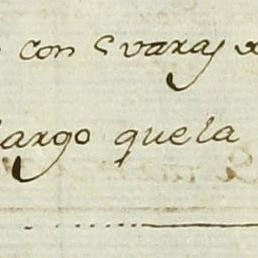 con 5 varas
largo que la